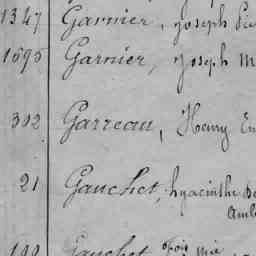 1347 Garnier, Joseph
1695 Garnier, Joseph M
302 Garreau, Henry
21 Gauchet, hyacinthe
Gauchet